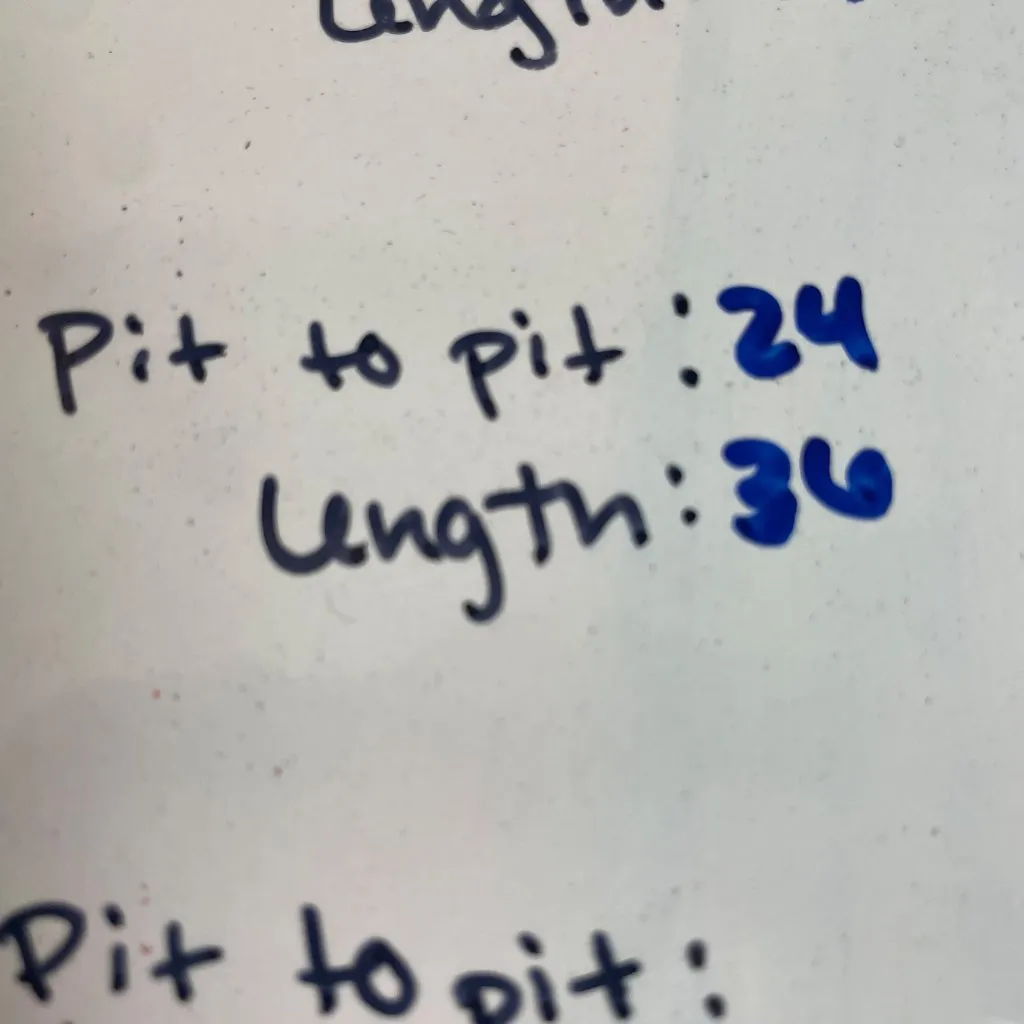 Length
Pit to pit : 24
Length : 36
Pit to pit :